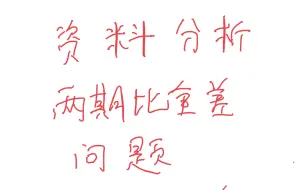 资料分析
两期比重差
问题